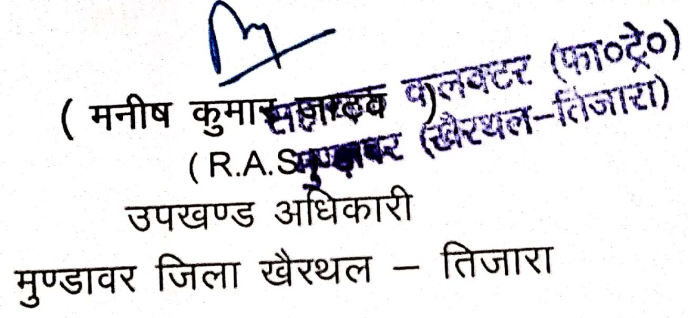 ( मनीष कुमार जाटव )
(R.A.S.)
उपखण्ड अधिकारी
मुण्डावर जिला खैरथल – तिजारा
सहायक कलक्टर (फा०ट्रे०)
मुण्डावर (खैरथल-तिजारा)